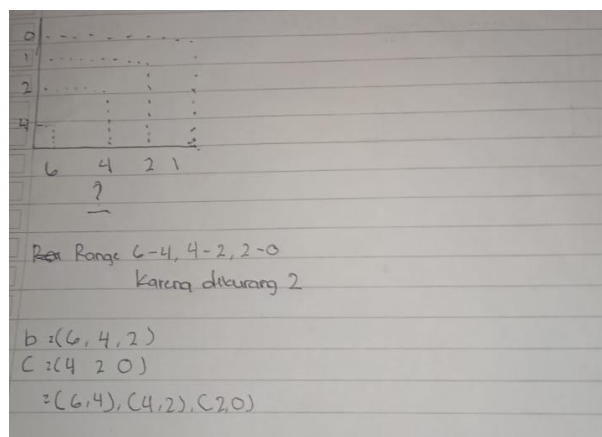 0
1
2
4
6 4 2 1
?
Range 6-4, 4-2, 2-0
Karena dikurang 2
b =(6, 4, 2)
C =(4 2 0)
=(6,4), (4,2), (2,0)